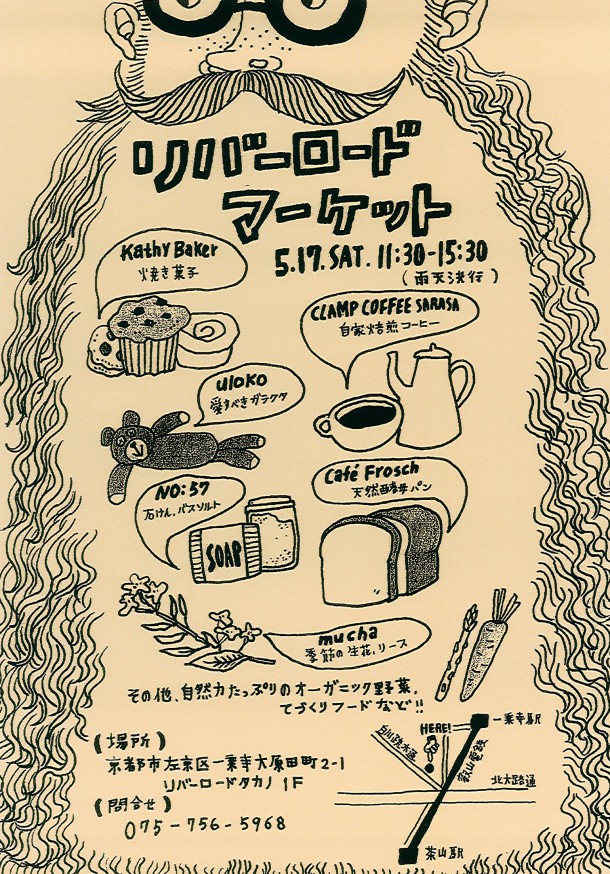 リバーロード
マーケット
5.17.SAT.11:30-15:30
(雨天決行)
Kathy Baker
焼き菓子
CLAMP COFFEE SARASA
自家焙煎コーヒー
uloko
愛すべきガラクタ
NO:57
石けん,バスソルト
SOAP
Café Frosch
天然酵母パン
mucha
季節の生花,リース
その他、自然力たっぷりのオーガニック野菜,
てづくりフードなど!!
(場所)
京都市左京区一乗寺大原田町2-1
リバーロードタカノ 1F
(問合せ)
075-756-5968
一乗寺駅
HERE!
白川疏水通
叡山電鉄
北大路通
茶山駅